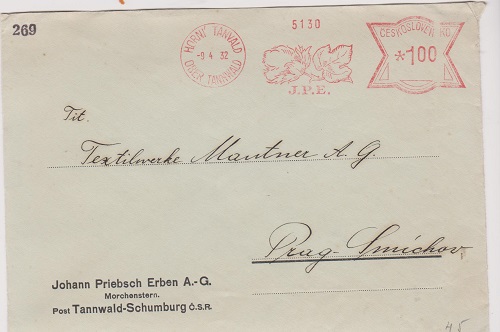 269
HORNÝ TANVALD
-9.4.32
OBER TANNWALD
5130
J.P.E.
ČESKOSLOVENSKO
*100
Tit.
Textilwerke Mautner A.G.
Prag-Smíchov
Johann Priebsch Erben A.-G.
Morchenstern.
Post Tannwald-Schumburg Č.S.R.
45